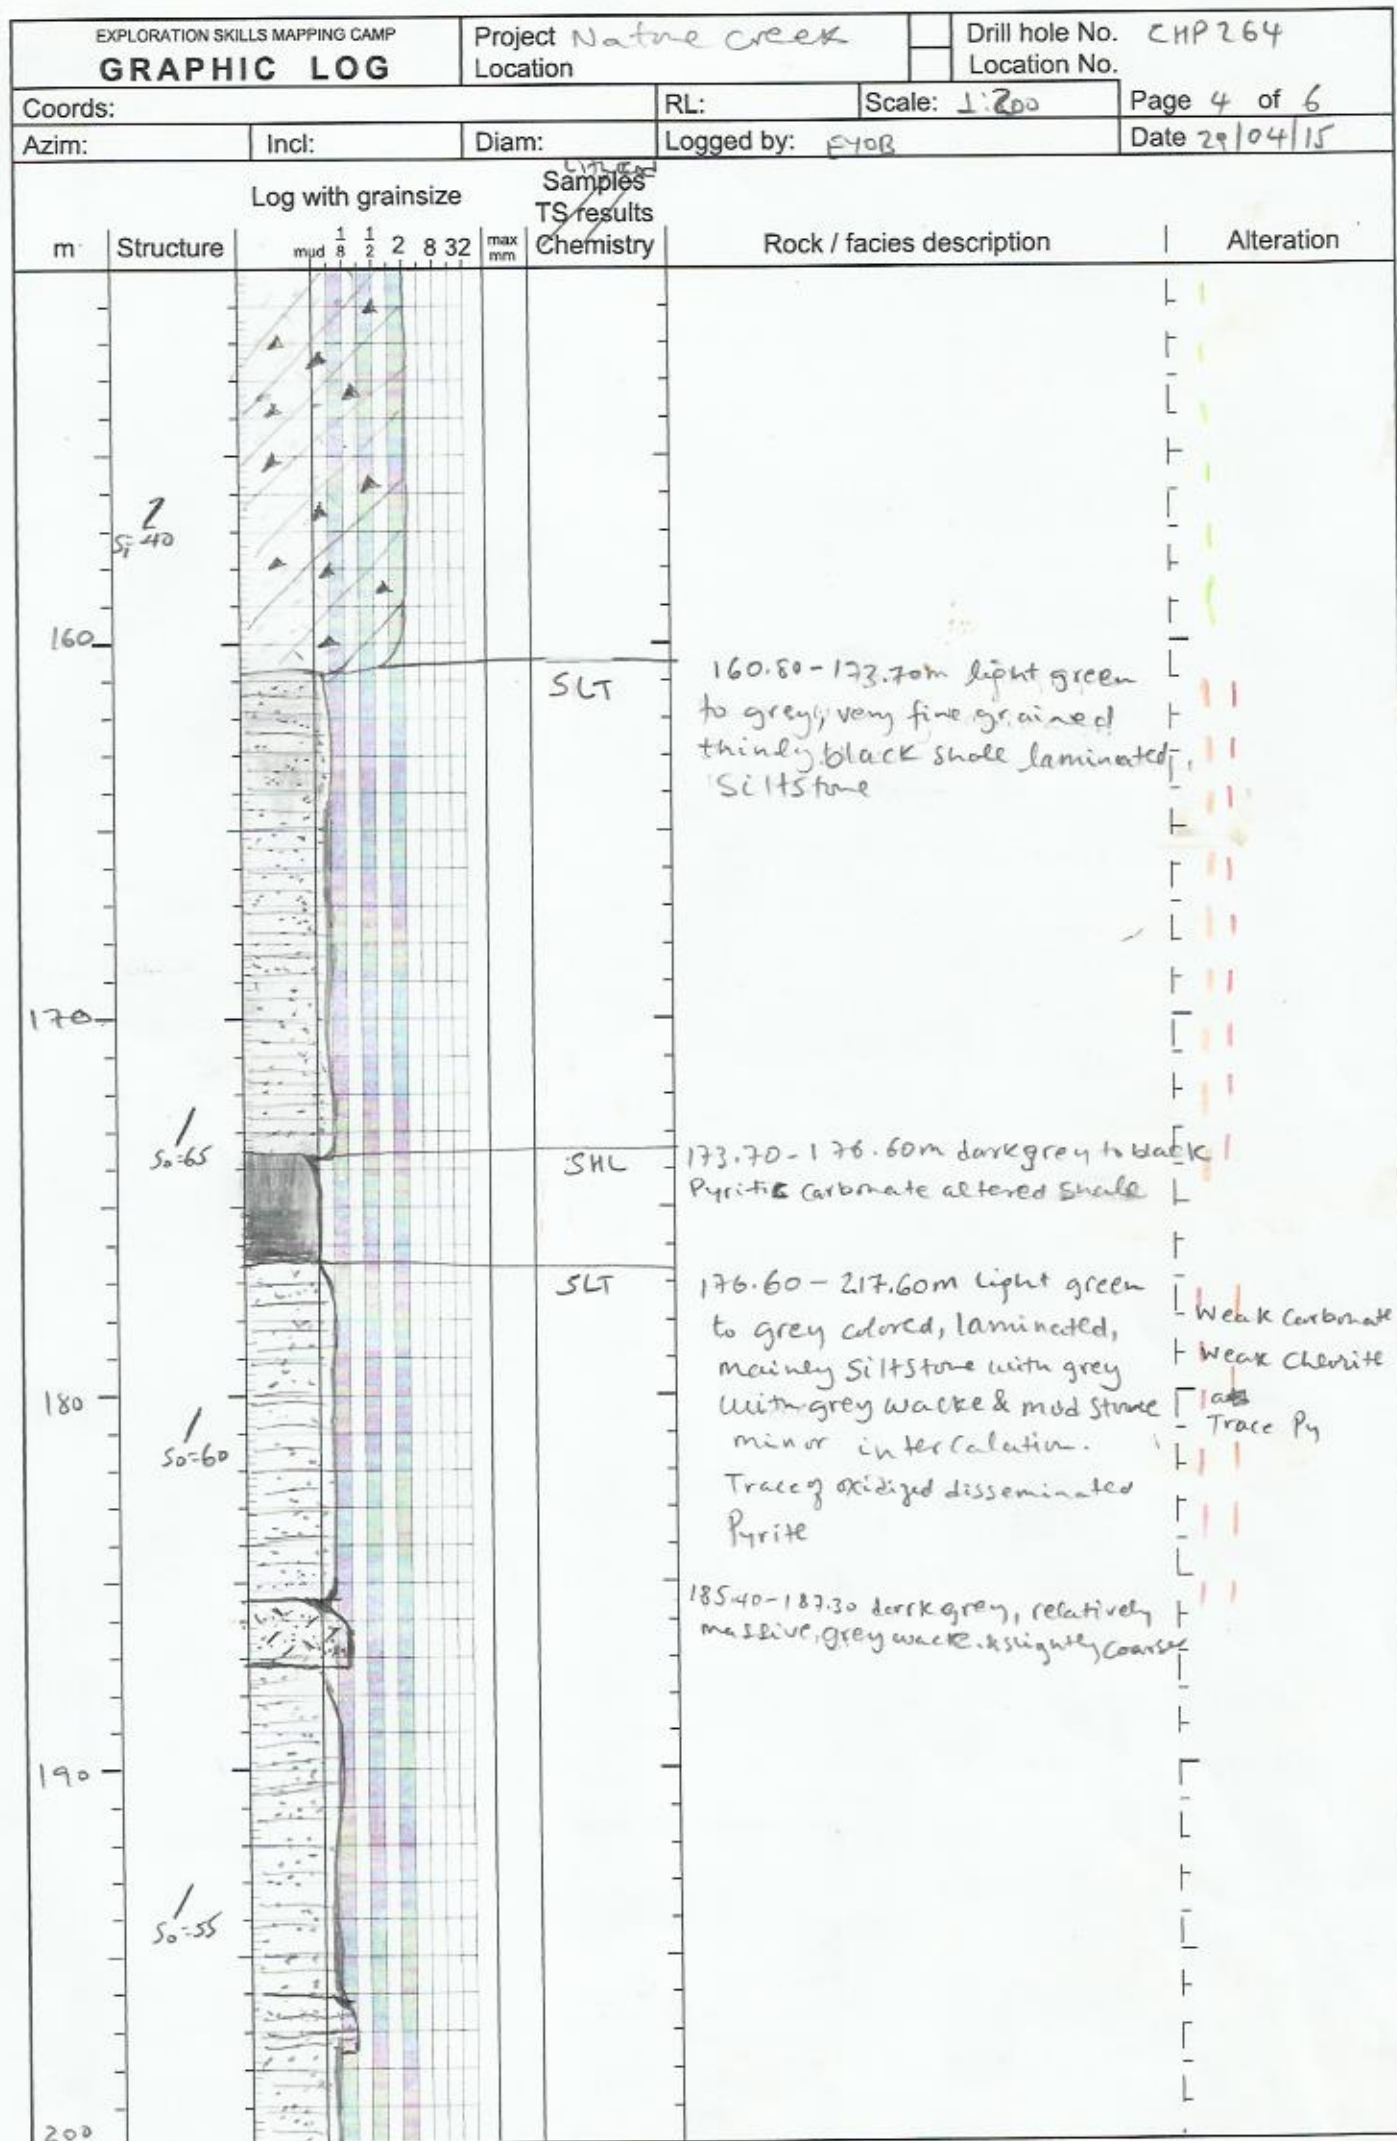 EXPLORATION SKILLS MAPPING CAMP
GRAPHIC LOG
Project Nature Creek
Location
Drill hole No. CHP264
Location No.
Coords:
RL:
Scale: 1:200
Page 4 of 6
Azim:
Incl:
Diam:
Logged by: EYOB
Date 29/04/15
m
Structure
Log with grainsize
mud 1/8 1/2 2 8 32
max mm
Samples
TS results
Chemistry
Rock / facies description
Alteration
160
170
180
190
200
S1=40
So=65
So=60
So=55
SLT
160.80-173.70m light green
to grey, very fine grained
thinly black shale laminated,
Siltstone
SHL
173.70-176.60m dark grey to black
Pyritic carbonate altered shale
SLT
176.60-217.60m Light green
to grey colored, laminated,
mainly Siltstone with grey
with grey wacke & mud stone
minor intercalation.
Trace of oxidized disseminated
Pyrite
Weak Carbonate
Weak Cholrite
Trace Py
185.40-187.30 dark grey, relatively
massive, grey wacke. & slightly coarse